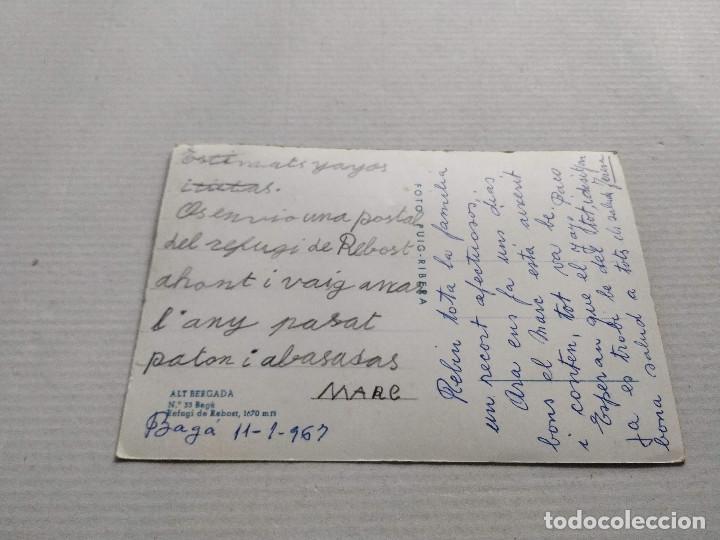 Estimats yayos
i tutas.
Os envio una postal
del refugi de Rebost
ahont i vaig anar
l'any pasat
paton i abasasas
MARC
ALT BERGADA
N.º 33 Bagá
Refugi de Rebost, 1670 m̃
Bagá 11-1-967
FOTO PUIG-RIBERA
Rebin tota la familia
un recort afectuosos,
Ara ens fa uns dias
bons el Marc está avorrit
i conten, tot va be.
Esperan que el yayo Paco
Ja es trobi be del tot, i desitjan
bona salud a tots
todocoleccion.net